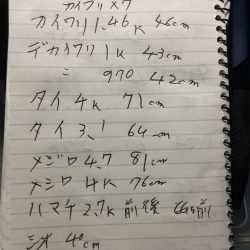 カイワリ×7
カイワリ 1.46K 46cm
デカイワリ 1K 43cm
〃 970 42cm
タイ 4K 71cm
タイ 3.1 64cm
メジロ 4.7 81cm
メジロ 4K 76cm
ハマチ 2.7K 前後 66前
シオ 40cm